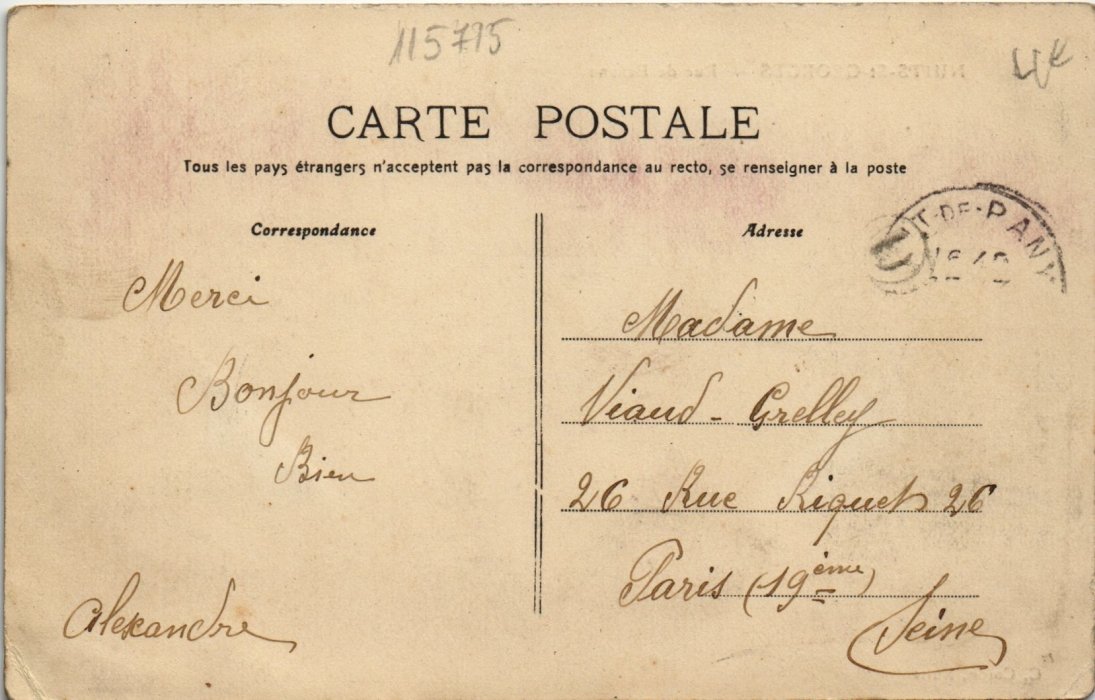 115795
4€
CARTE POSTALE
Tous les pays étrangers n'acceptent pas la correspondance au recto, se renseigner à la poste
Correspondance
Merci
Bonjour
Bien
Alexandre
Adresse
T-DE-PANY
Madame
Viaud-Grelley
26 Rue Riquet 26
Paris (19ème)
Seine